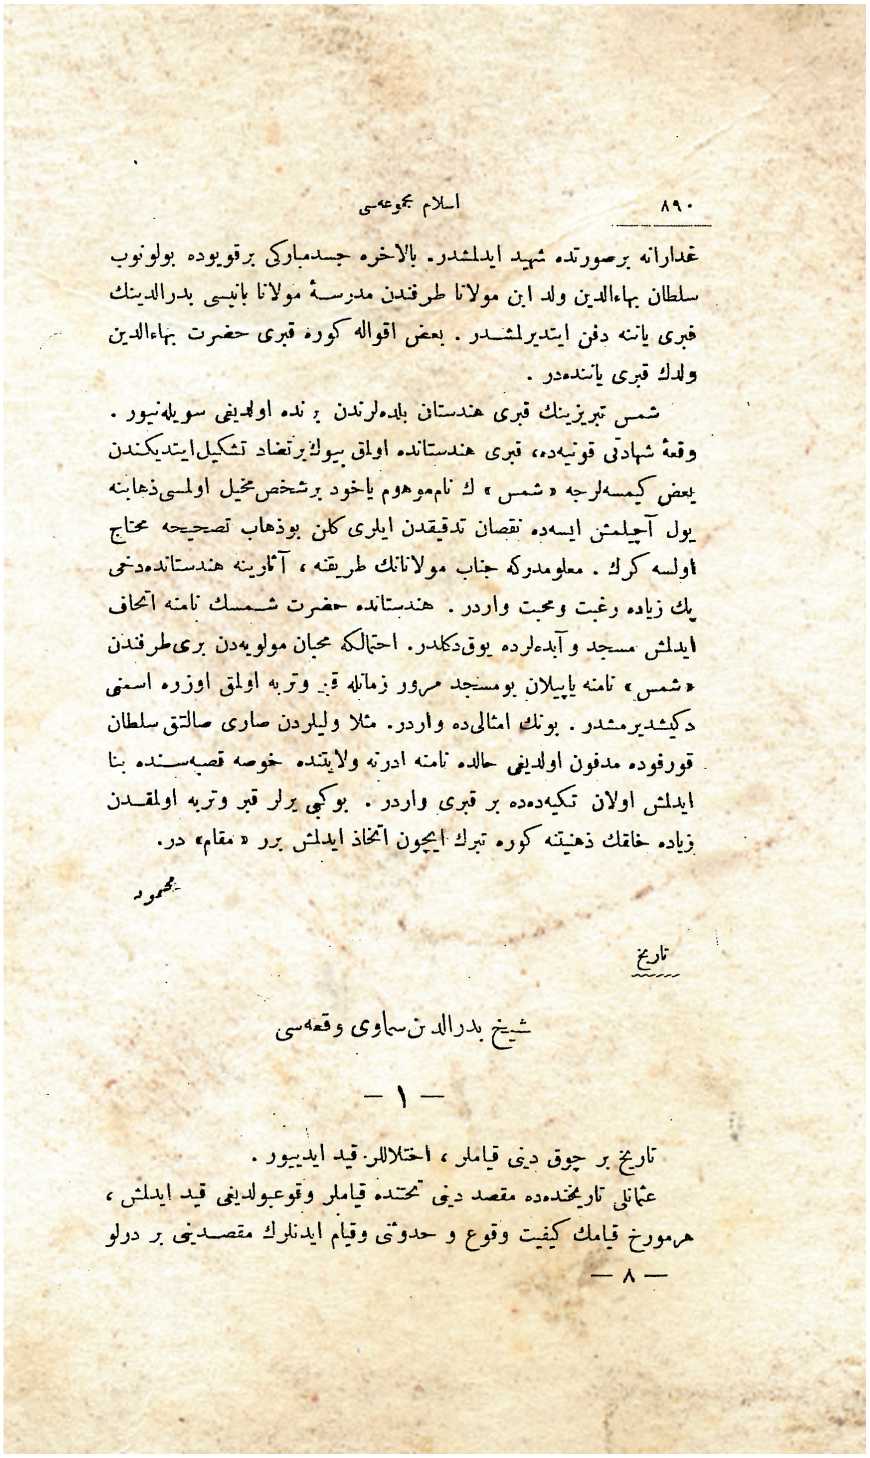 ٨٩٠
اسلام مجموعه‌سی
غدارانه برصورتده شهید ایدلمشدر. بالاخره جسدمبارکی برقویوده بولونوب
سلطان بهاءالدین ولد ابن مولانا طرفندن مدرسهٔ مولانا بانیسی بدرالدینك
قبری یاننه دفن ایتدیرلمشدر . بعض اقواله کوره قبری حضرت بهاءالدین
ولدك قبری یاننده‌در .
شمس تبریزینك قبری هندستان بلده‌لرندن برنده اولدیغی سویله‌نیور .
وقعهٔ شهادتی قونیه‌ده، قبری هندستانده اولمق بیوك برتضاد تشکیل ایتدیکندن
بعض کیمسه‌لرجه «شمس» ك نام‌موهوم یاخود برشخص مخیل اولمسی ذهابنه
یول آچیلمش ایسه‌ده نقصان تدقیقدن ایلری کلن بوذهاب تصحیحه محتاج
اولسه کرك . معلومدرکه جناب مولانانك طریقنه ، آثارینه هندستانده‌دخی
پك زیاده رغبت ومحبت واردر . هندستانده حضرت شمسك نامنه اتحاف
ایدلمش مسجد و آبده‌لرده یوق‌دکلدر. احتمالکه محبان مولویه‌دن بری طرفندن
«شمس» نامنه یاپیلان بومسجد مرور زمانله قبر وتربه اولمق اوزره اسمنی
دکیشدیرمشدر . بونك امثالی‌ده واردر. مثلا ولیلردن صاری صالتق سلطان
قورفوده مدفون اولدیغی حالده نامنه ادرنه ولایتنده خوصه قصبه‌سنده بنا
ایدلمش اولان تکیه‌ده‌ده بر قبری واردر . بوکبی یرلر قبر وتربه اولمقدن
زیاده خلقك ذهنیتنه کوره تبرك ایچون اتخاذ ایدلمش برر «مقام» در.
محمود
تاریخ
شیخ بدرالدین سماوی وقعه‌سی
— ١ —
تاریخ بر چوق دینی قیاملر ، اختلاللر قید ایدییور .
عثمانلی تاریخنده‌ده مقصد دینی تحتنده قیاملر وقوعبولدیغی قید ایدلمش ،
هرمورخ قیامك کیفیت وقوع و حدوثنی وقیام ایدنلرك مقصدینی بر درلو
— ٨ —